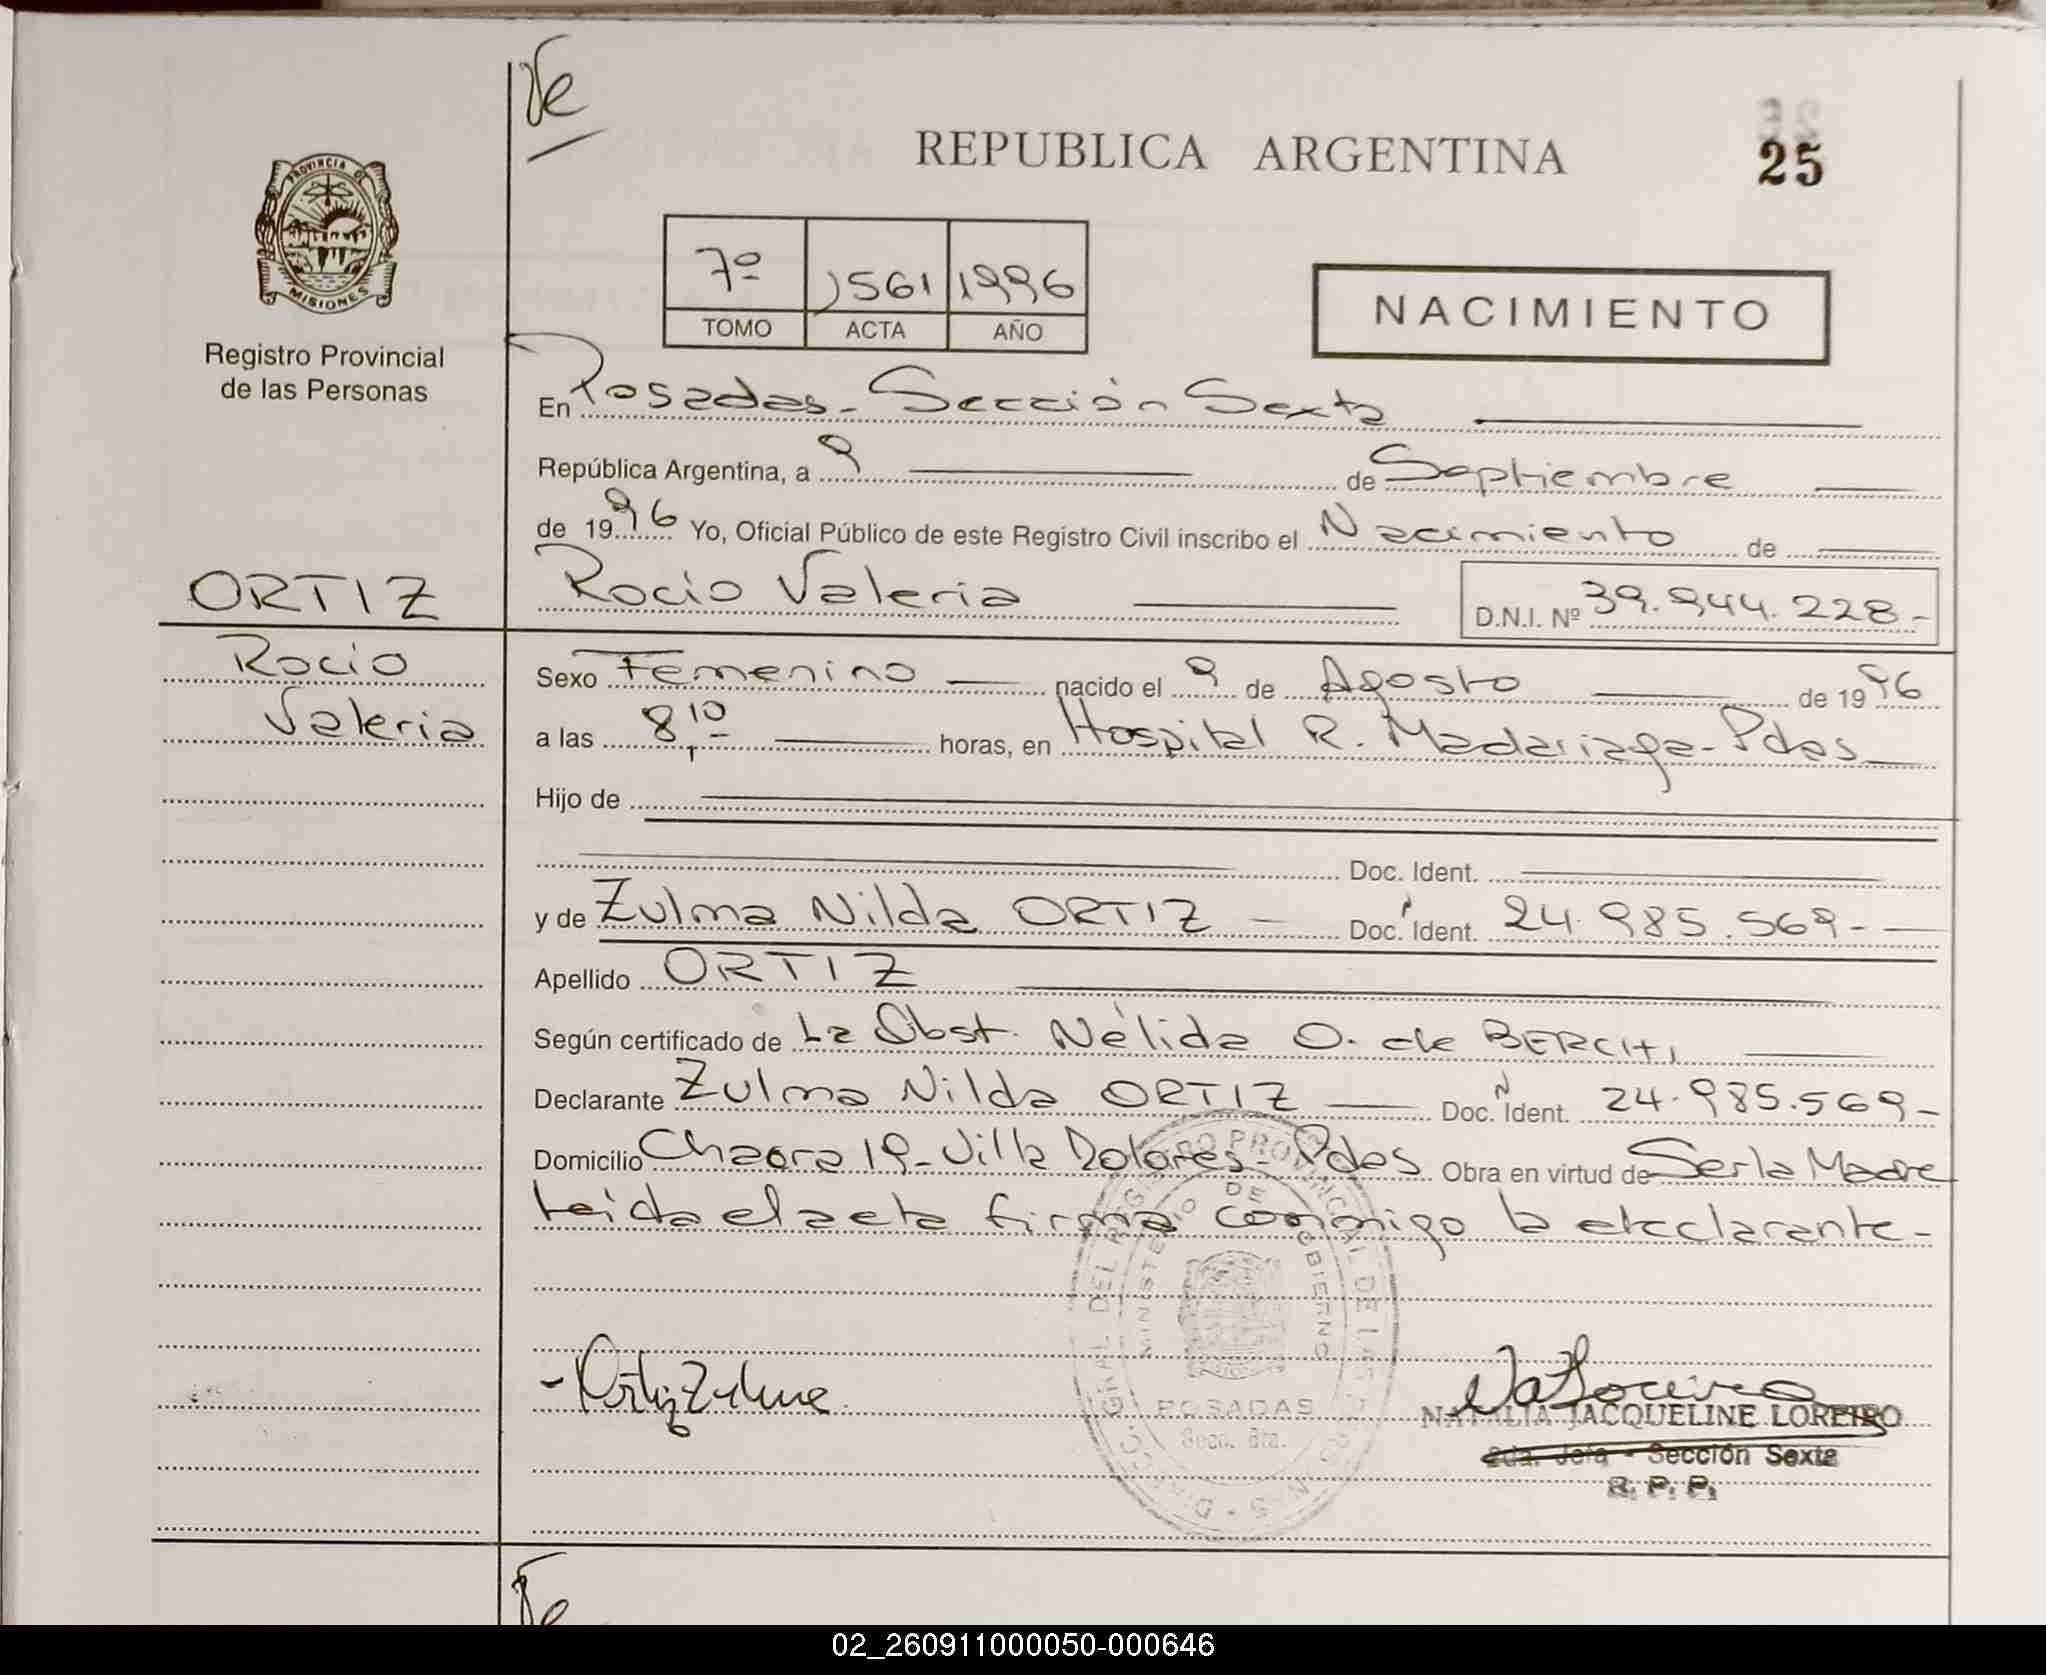 Ve
REPUBLICA ARGENTINA
25
PROVINCIA DE
MISIONES
Registro Provincial
de las Personas
7º 1561 1996
TOMO ACTA AÑO
NACIMIENTO
En Posadas - Sección Sexta
República Argentina, a 9 de Septiembre
de 1996 Yo, Oficial Público de este Registro Civil inscribo el Nacimiento de
ORTIZ Rocio Valeria D.N.I. Nº 39.944.228-
Rocio Sexo Femenino nacido el 9 de Agosto de 1996
Valeria a las 8,10 horas, en Hospital R. Madariaga - Pdas
Hijo de
Doc. Ident.
y de Zulma Nilda ORTIZ Doc. Ident. 24.985.569-
Apellido ORTIZ
Según certificado de La Obst. Nélida O. de
Declarante Zulma Nilda ORTIZ Doc. Ident. 24.985.569-
Domicilio Chacra 19 - Villa Dolores - Pdas Obra en virtud de Ser la Madre
Leida el acta firma conmigo la declarante -
DIRECC. GRAL DEL REGISTRO PROVINCIAL DE LAS PERSONAS
MINISTERIO DE GOBIERNO
POSADAS
Secc. 6ta.
- Ortiz Zulma
NATALIA JACQUELINE LOREIRO
2da. Jefa - Sección Sexta
R. P. P.
Ve
02_260911000050-000646